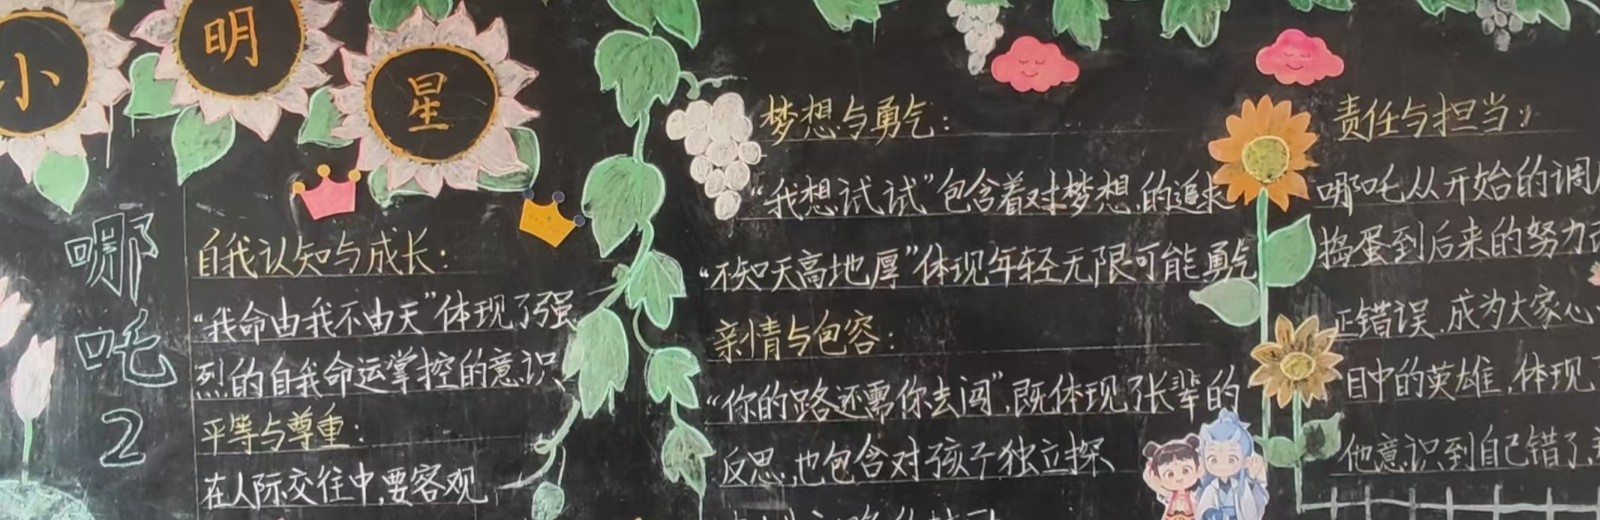 小明星
哪吒2
自我认知与成长:
“我命由我不由天”体现了强
烈的自我命运掌控的意识
平等与尊重:
在人际交往中,要客观
梦想与勇气:
“我想试试”包含着对梦想的追求
“不知天高地厚”体现年轻无限可能勇气
亲情与包容:
“你的路还需你去闯”,既体现了长辈的
反思,也包含对孩子独立探
责任与担当:
哪吒从开始的调
捣蛋到后来的努力
正错误,成为大家心
目中的英雄,体现
他意识到自己错了,